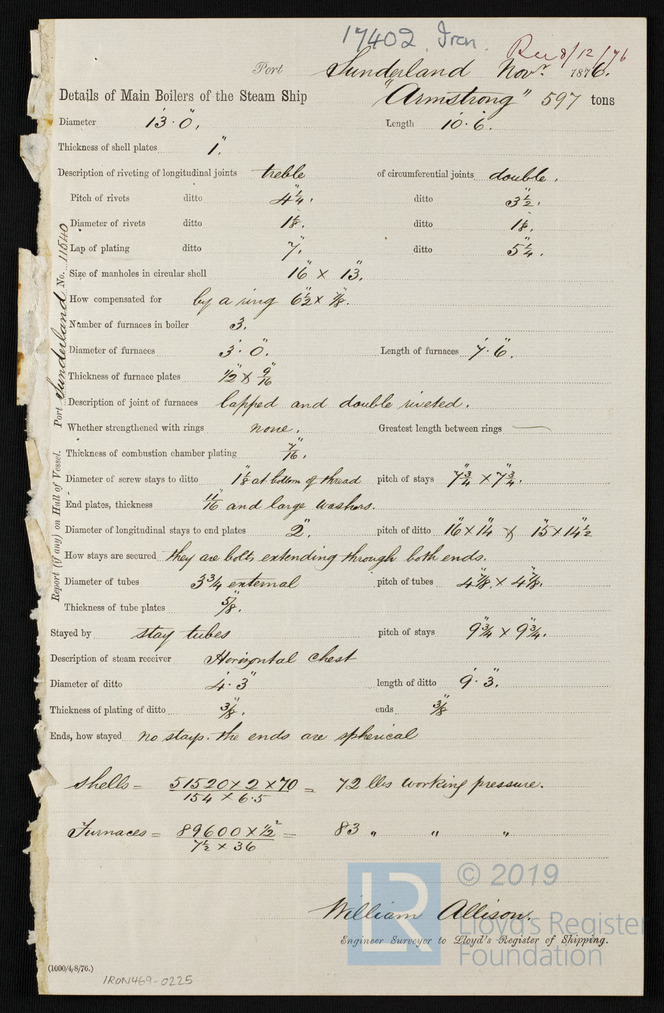 17402 Iron.
Rec 8/12/76
Port Sunderland Novr. 1876.
Details of Main Boilers of the Steam Ship "Armstrong" 597 tons
Diameter 13'.0". Length 10'.6".
Thickness of shell plates 1".
Description of riveting of longitudinal joints treble of circumferential joints double.
Pitch of rivets ditto 4¼". ditto 3½".
Diameter of rivets ditto 1⅛". ditto 1⅛".
Lap of plating ditto 7". ditto 5¼".
Size of manholes in circular shell 16" × 13".
How compensated for by a ring 6½" × ⅞".
Number of furnaces in boiler 3.
Diameter of furnaces 3'. 0". Length of furnaces 7'. 6".
Thickness of furnace plates ½" × 9/16"
Description of joint of furnaces lapped and double riveted.
Whether strengthened with rings none. Greatest length between rings —
Thickness of combustion chamber plating 7/16".
Diameter of screw stays to ditto 1⅛" at bottom of thread pitch of stays 7¾" × 7¾".
End plates, thickness 11/16" and large washers.
Diameter of longitudinal stays to end plates 2". pitch of ditto 16" × 14" & 15" × 14½"
How stays are secured they are bolts extending through both ends.
Diameter of tubes 3¾" external pitch of tubes 4⅞" × 4⅞".
Thickness of tube plates ⅝".
Stayed by stay tubes pitch of stays 9¾" × 9¾".
Description of steam receiver Horizontal chest
Diameter of ditto 4'. 3" length of ditto 9'. 3".
Thickness of plating of ditto ⅜". ends ⅜"
Ends, how stayed no stays. the ends are spherical
Shells = 51520 × 2 × 70 / 154 × 6.5 = 72 lbs working pressure.
Furnaces = 89600 × ½² / 7½ × 36 = 83 " " "
William Allison.
Engineer Surveyor to Lloyd's Register of Shipping.
(1000/4/8/76.)
IRON469-0225
Report (if any) on Hull of Vessel. Port Sunderland No. 11540
© 2019
LR
Lloyd's Register
Foundation